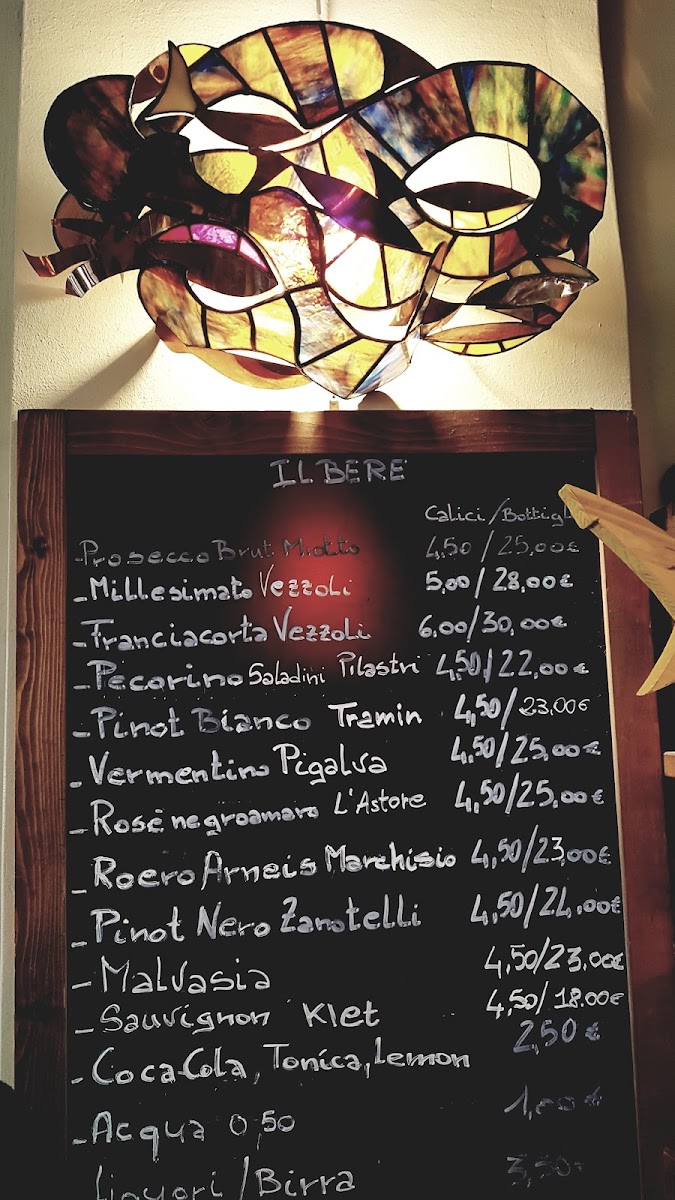 IL BERE
Calici/Bottigl
-Prosecco Brut Miotto 4,50 / 25,00€
-Millesimato Vezzoli 5,00 / 28,00€
-Franciacorta Vezzoli 6,00/30,00€
-Pecorino Saladini Pilastri 4,50/22,00€
-Pinot Bianco Tramin 4,50/23,00€
-Vermentino Pigalva 4,50/25,00€
-Rosè negroamaro L'Astore 4,50/25,00€
-Roero Arneis Marchisio 4,50/23,00€
-Pinot Nero Zanotelli 4,50/24,00€
-Malvasia 4,50/23,00€
-Sauvignon Klet 4,50/18.00€
-Coca-Cola, Tonica, Lemon 2,50 €
-Acqua 0,50 1,00 €
Liquori/Birra 3,50